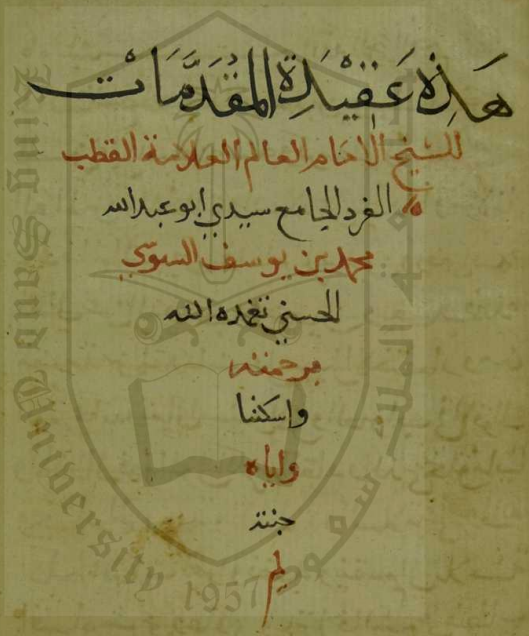 هَذِهِ عَقِيْدَةِ المُقَدَّمَاتْ
للشيخ الامام العالم العلامة القطب
الفرد الجامع سيدي ابو عبد الله
محمد بن يوسف السنوسي
الحسني تغمده الله
برحمته
واسكننا
واياه
جنته
King Saud University 1957